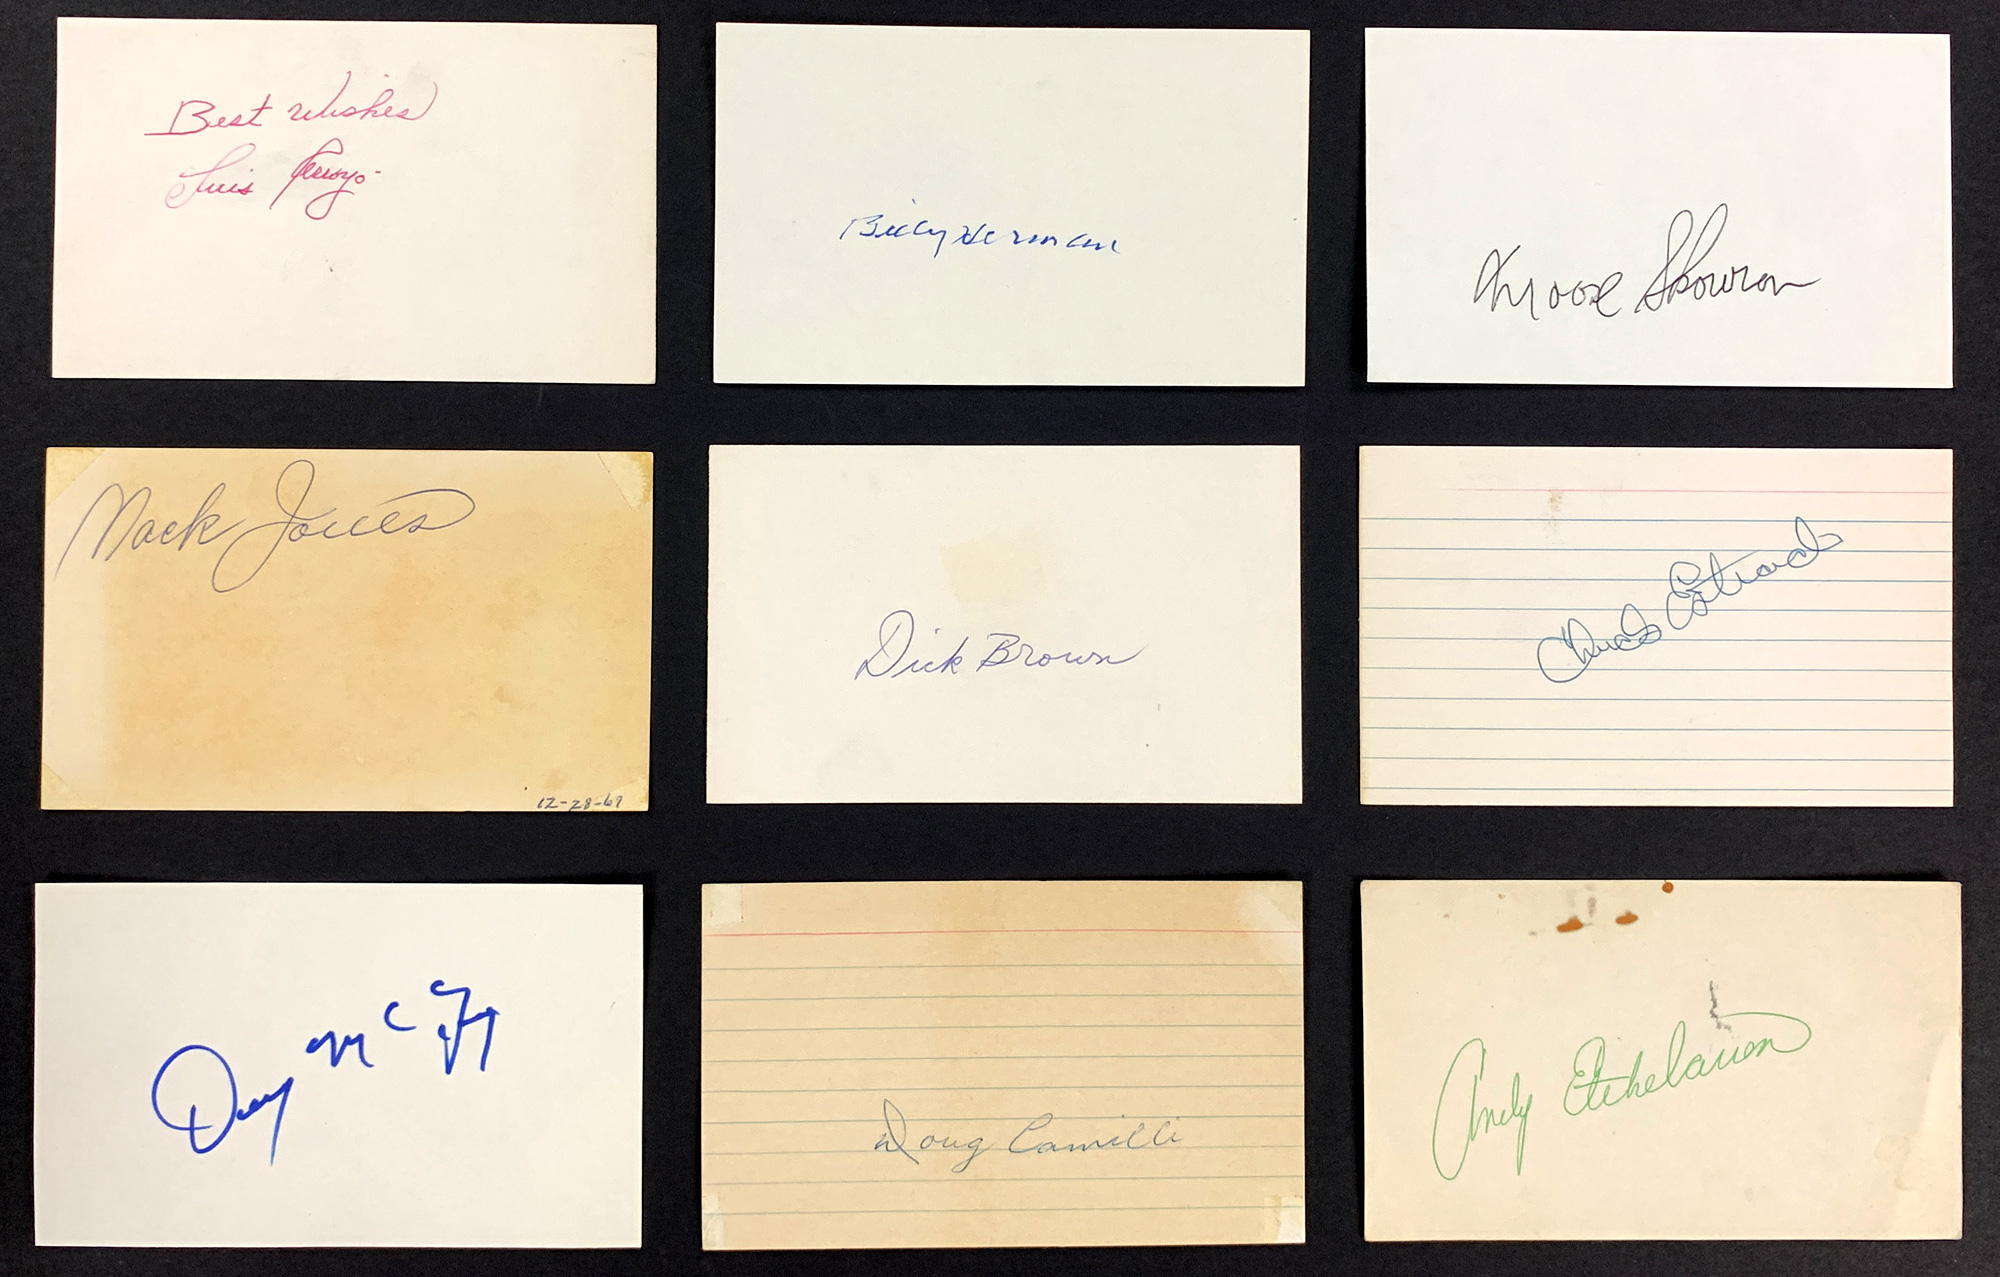 Best Wishes
Luis Arroyo
Billy Herman
Moose Skowron
Mack Jones
12-28-67
Dick Brown
Chuck Estrada
Doug Camilli
Andy Etchebarren